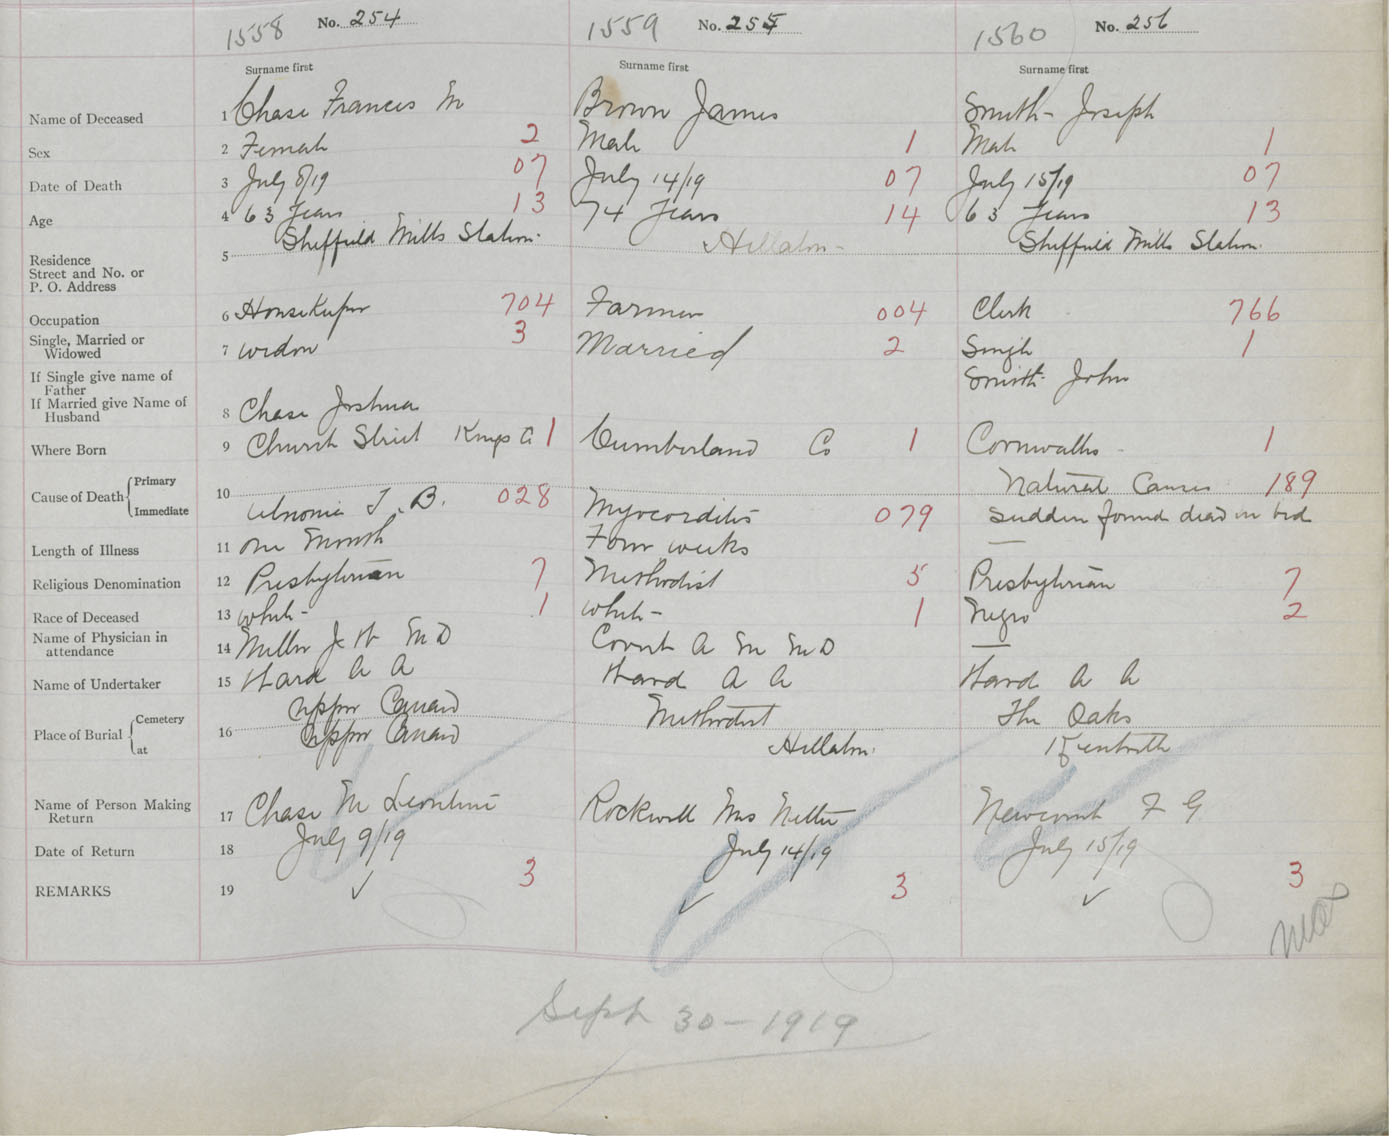 1558 No. 254 1559 No. 255 1560 No. 256
Surname first Surname first Surname first
Name of Deceased 1 Chase Frances M Brown James Smith Joseph
Sex 2 Female 2 Male 1 Male 1
Date of Death 3 July 8/19 07 July 14/19 07 July 15/19 07
Age 4 63 Years 13 74 Years 14 63 Years 13
Residence Street and No. or P. O. Address 5 Sheffield Mills Station. Hillaton Sheffield Mills Station.
Occupation 6 Housekeeper 704 Farmer 004 Clerk 766
Single, Married or Widowed 7 widow 3 Married 2 Single 1
If Single give name of Father Smith John
If Married give Name of Husband 8 Chase Joshua
Where Born 9 Church Street Kings Co 1 Cumberland Co 1 Cornwallis 1
Cause of Death Primary 10 Natural Causes 189
Immediate T. B. 028 Myocarditis 079 Sudden found dead in bed
Length of Illness 11 One Month Four weeks —
Religious Denomination 12 Presbyterian 7 Methodist 5 Presbyterian 7
Race of Deceased 13 white 1 white 1 Negro 2
Name of Physician in attendance 14 Miller J H M D Covert A M M D —
Name of Undertaker 15 Ward A A Ward A A Ward A A
Place of Burial Cemetery 16 Upper Canard Methodist The Oaks
at Upper Canard Hillaton. Kentville
Name of Person Making Return 17 Chase M Leontine Rockwell Mrs Nettie Newcomb F G
Date of Return 18 July 9/19 July 14/19 July 15/19
REMARKS 19 ✓ 3 ✓ 3 ✓ 3
Sept 30 – 1919